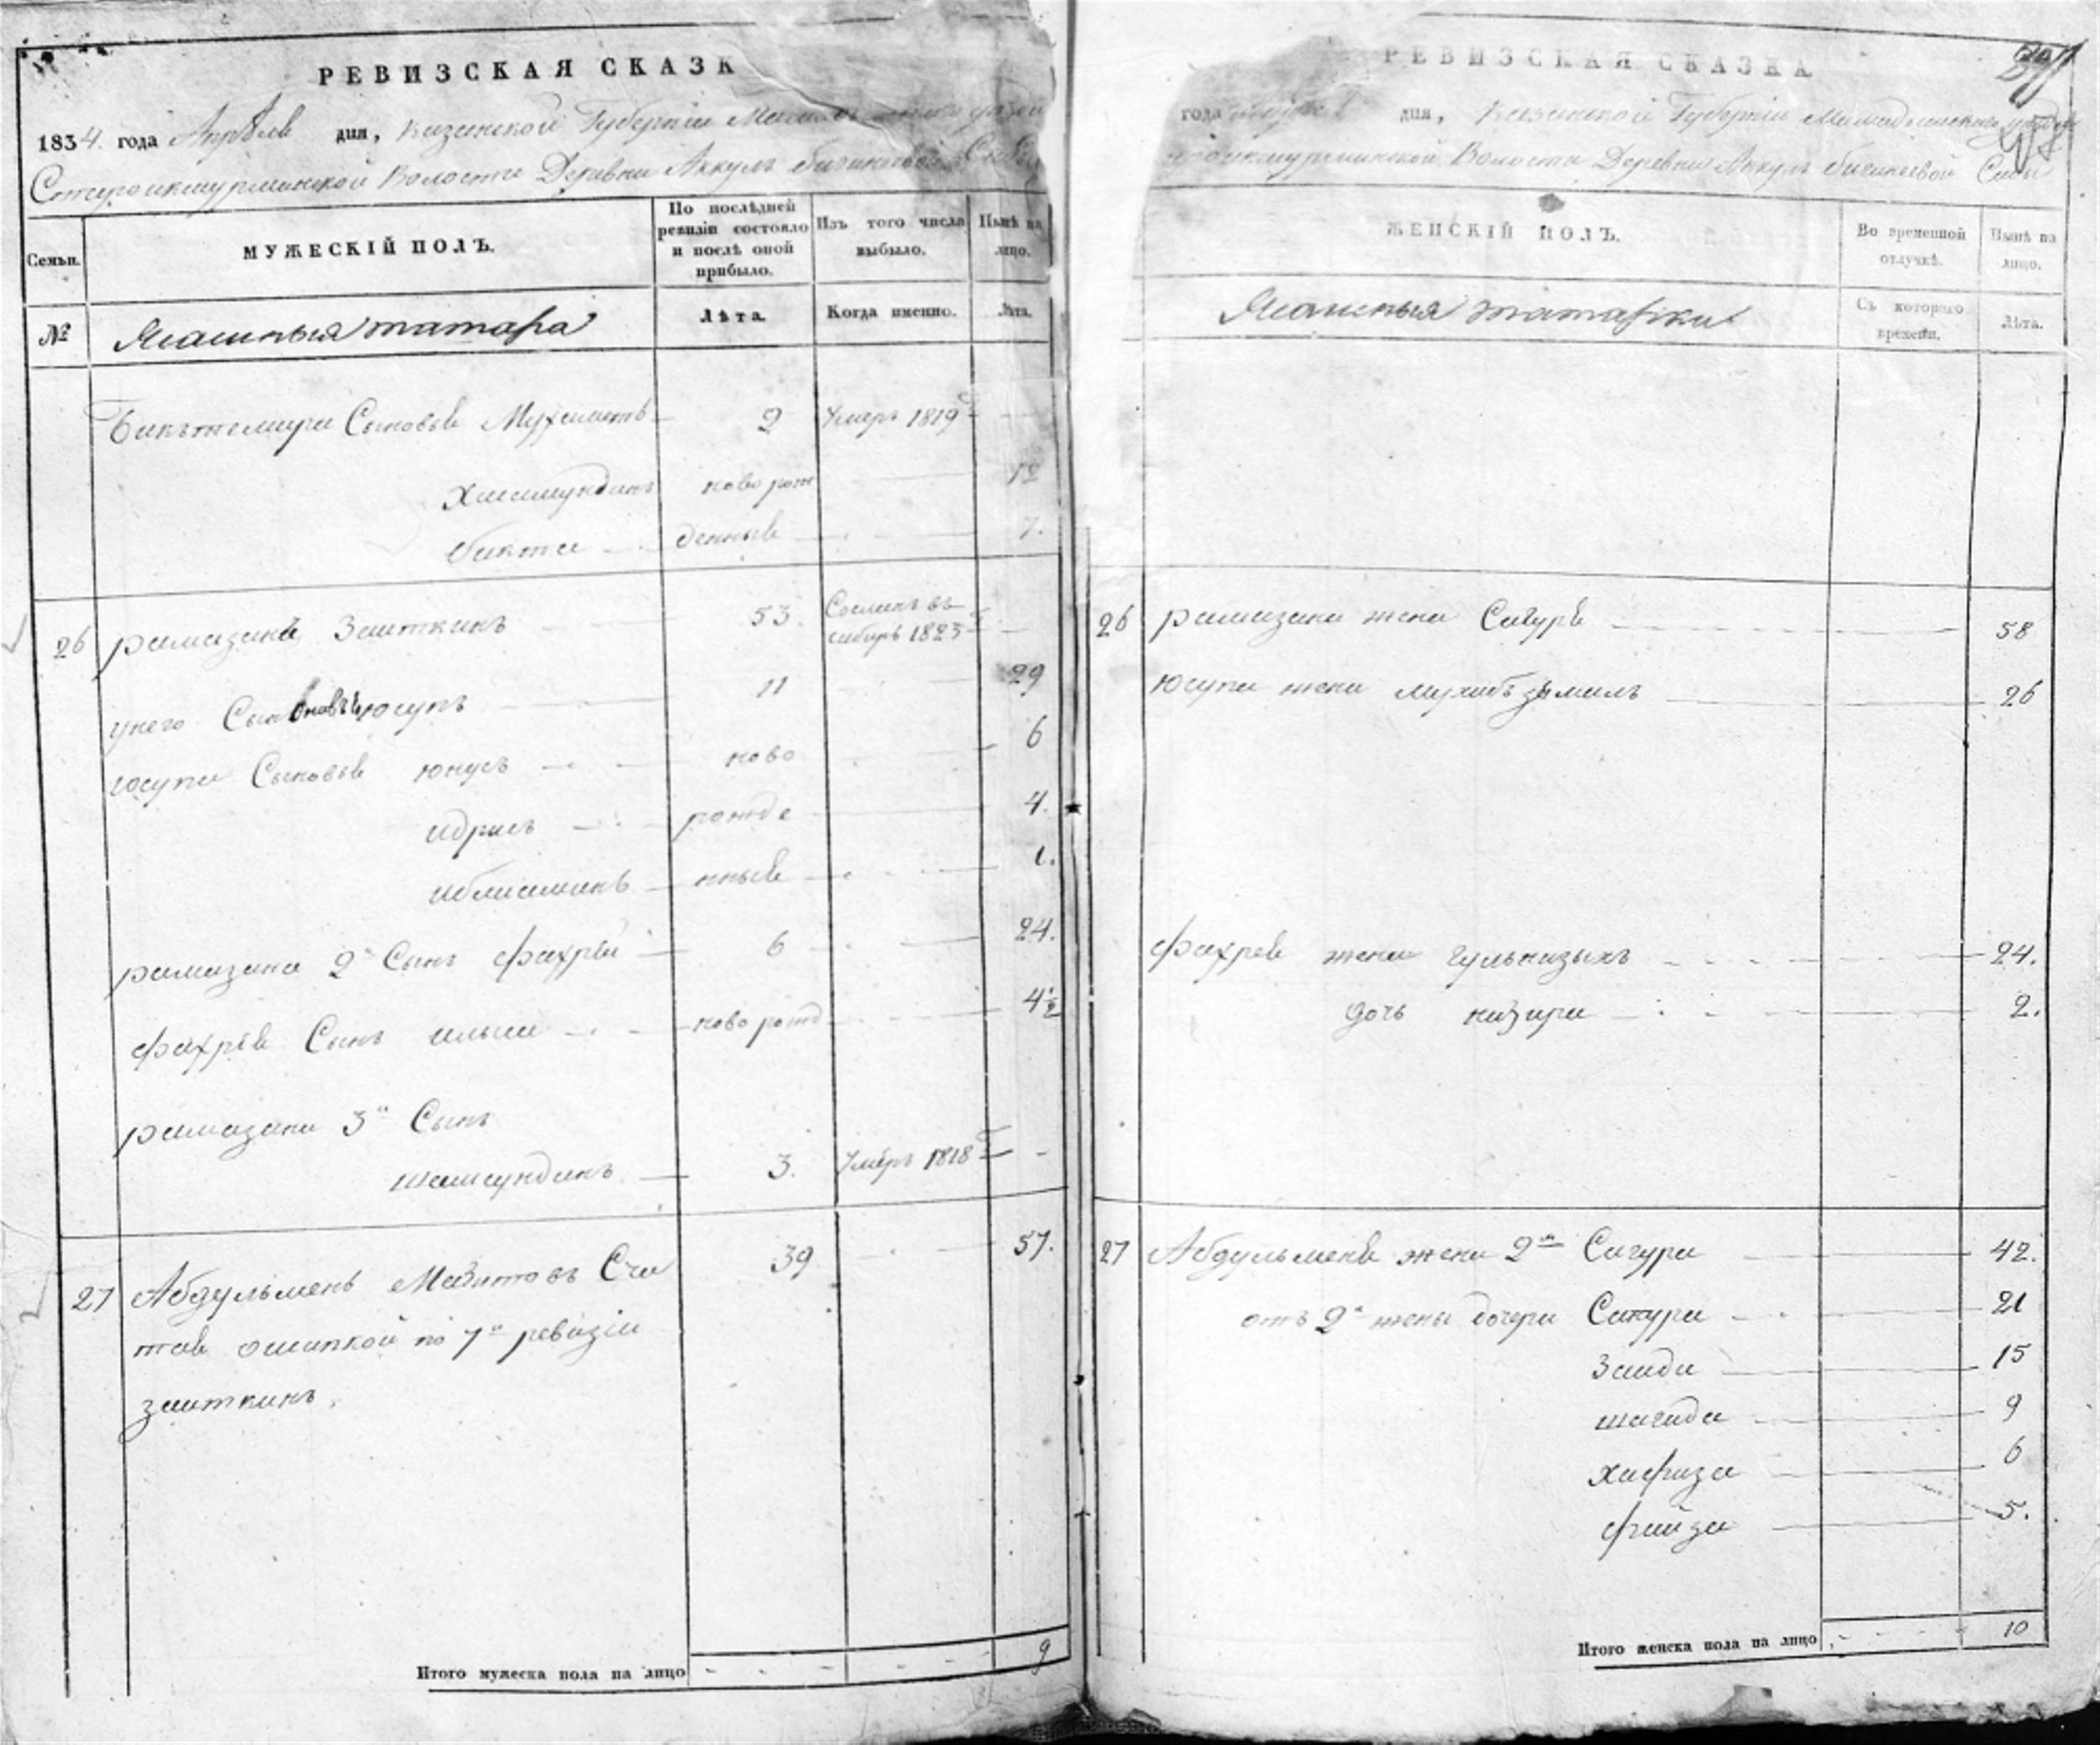 РЕВИЗСКАЯ СКАЗК
1834 года Апреля дня, Казанской Губерніи
Староикшурминской Волости Деревни Аккуль бигинеевой
Семьи.
МУЖЕСКІЙ ПОЛЪ.
По послѣдней ревизіи состояло и послѣ оной прибыло.
Изъ того числа выбыло.
Нынѣ на лицо.
№
Ясашныя татара
Лѣта.
Когда именно.
Лѣта.
Бикътемира Сыновья Мухаметъ 2 Умеръ 1819
Хисамундинъ ново рож 12
бикта денныя 7.
26 рамазанъ Заиткинъ 53. Сосланъ въ
сибирь 1823
у него Сыновья юсупъ 11 29
юсупа Сыновья юнусъ ново 6
идрисъ рожде 4.
нныя 1.
рамазана 2й Сынъ Фахрей 6 24.
Фахрея Сынъ ильяс ново рожд 4½
рамазана 3й Сынъ
шамсундинъ 3. Умеръ 1818
27 Абдульменъ Маитовъ Счи 39 57.
тав ошипкой по 7й ревизіи
заиткинъ.
Итого мужеска пола на лицо 9
РЕВИЗСКАЯ СКАЗКА
года дня, Казанской Губерніи Мамадышскаго уезда
Волости Деревни Аккуль бигинеевой
ЖЕНСКІЙ ПОЛЪ.
Во временной отлучкѣ.
Нынѣ на лицо.
Ясашныя татарки
Съ котораго времени.
Лѣта.
26 рамазана жена Сагуря 58
юсупа жена мухибзямиль 26
Фахрея жена гульназыхъ 24.
дочь назира 2.
27 Абдульменя жена 2я Сагура 42.
отъ 2й жены дочери Сакура 21
Заида 15
шагида 9
хафиза 6
файза 5.
Итого женска пола на лицо 10